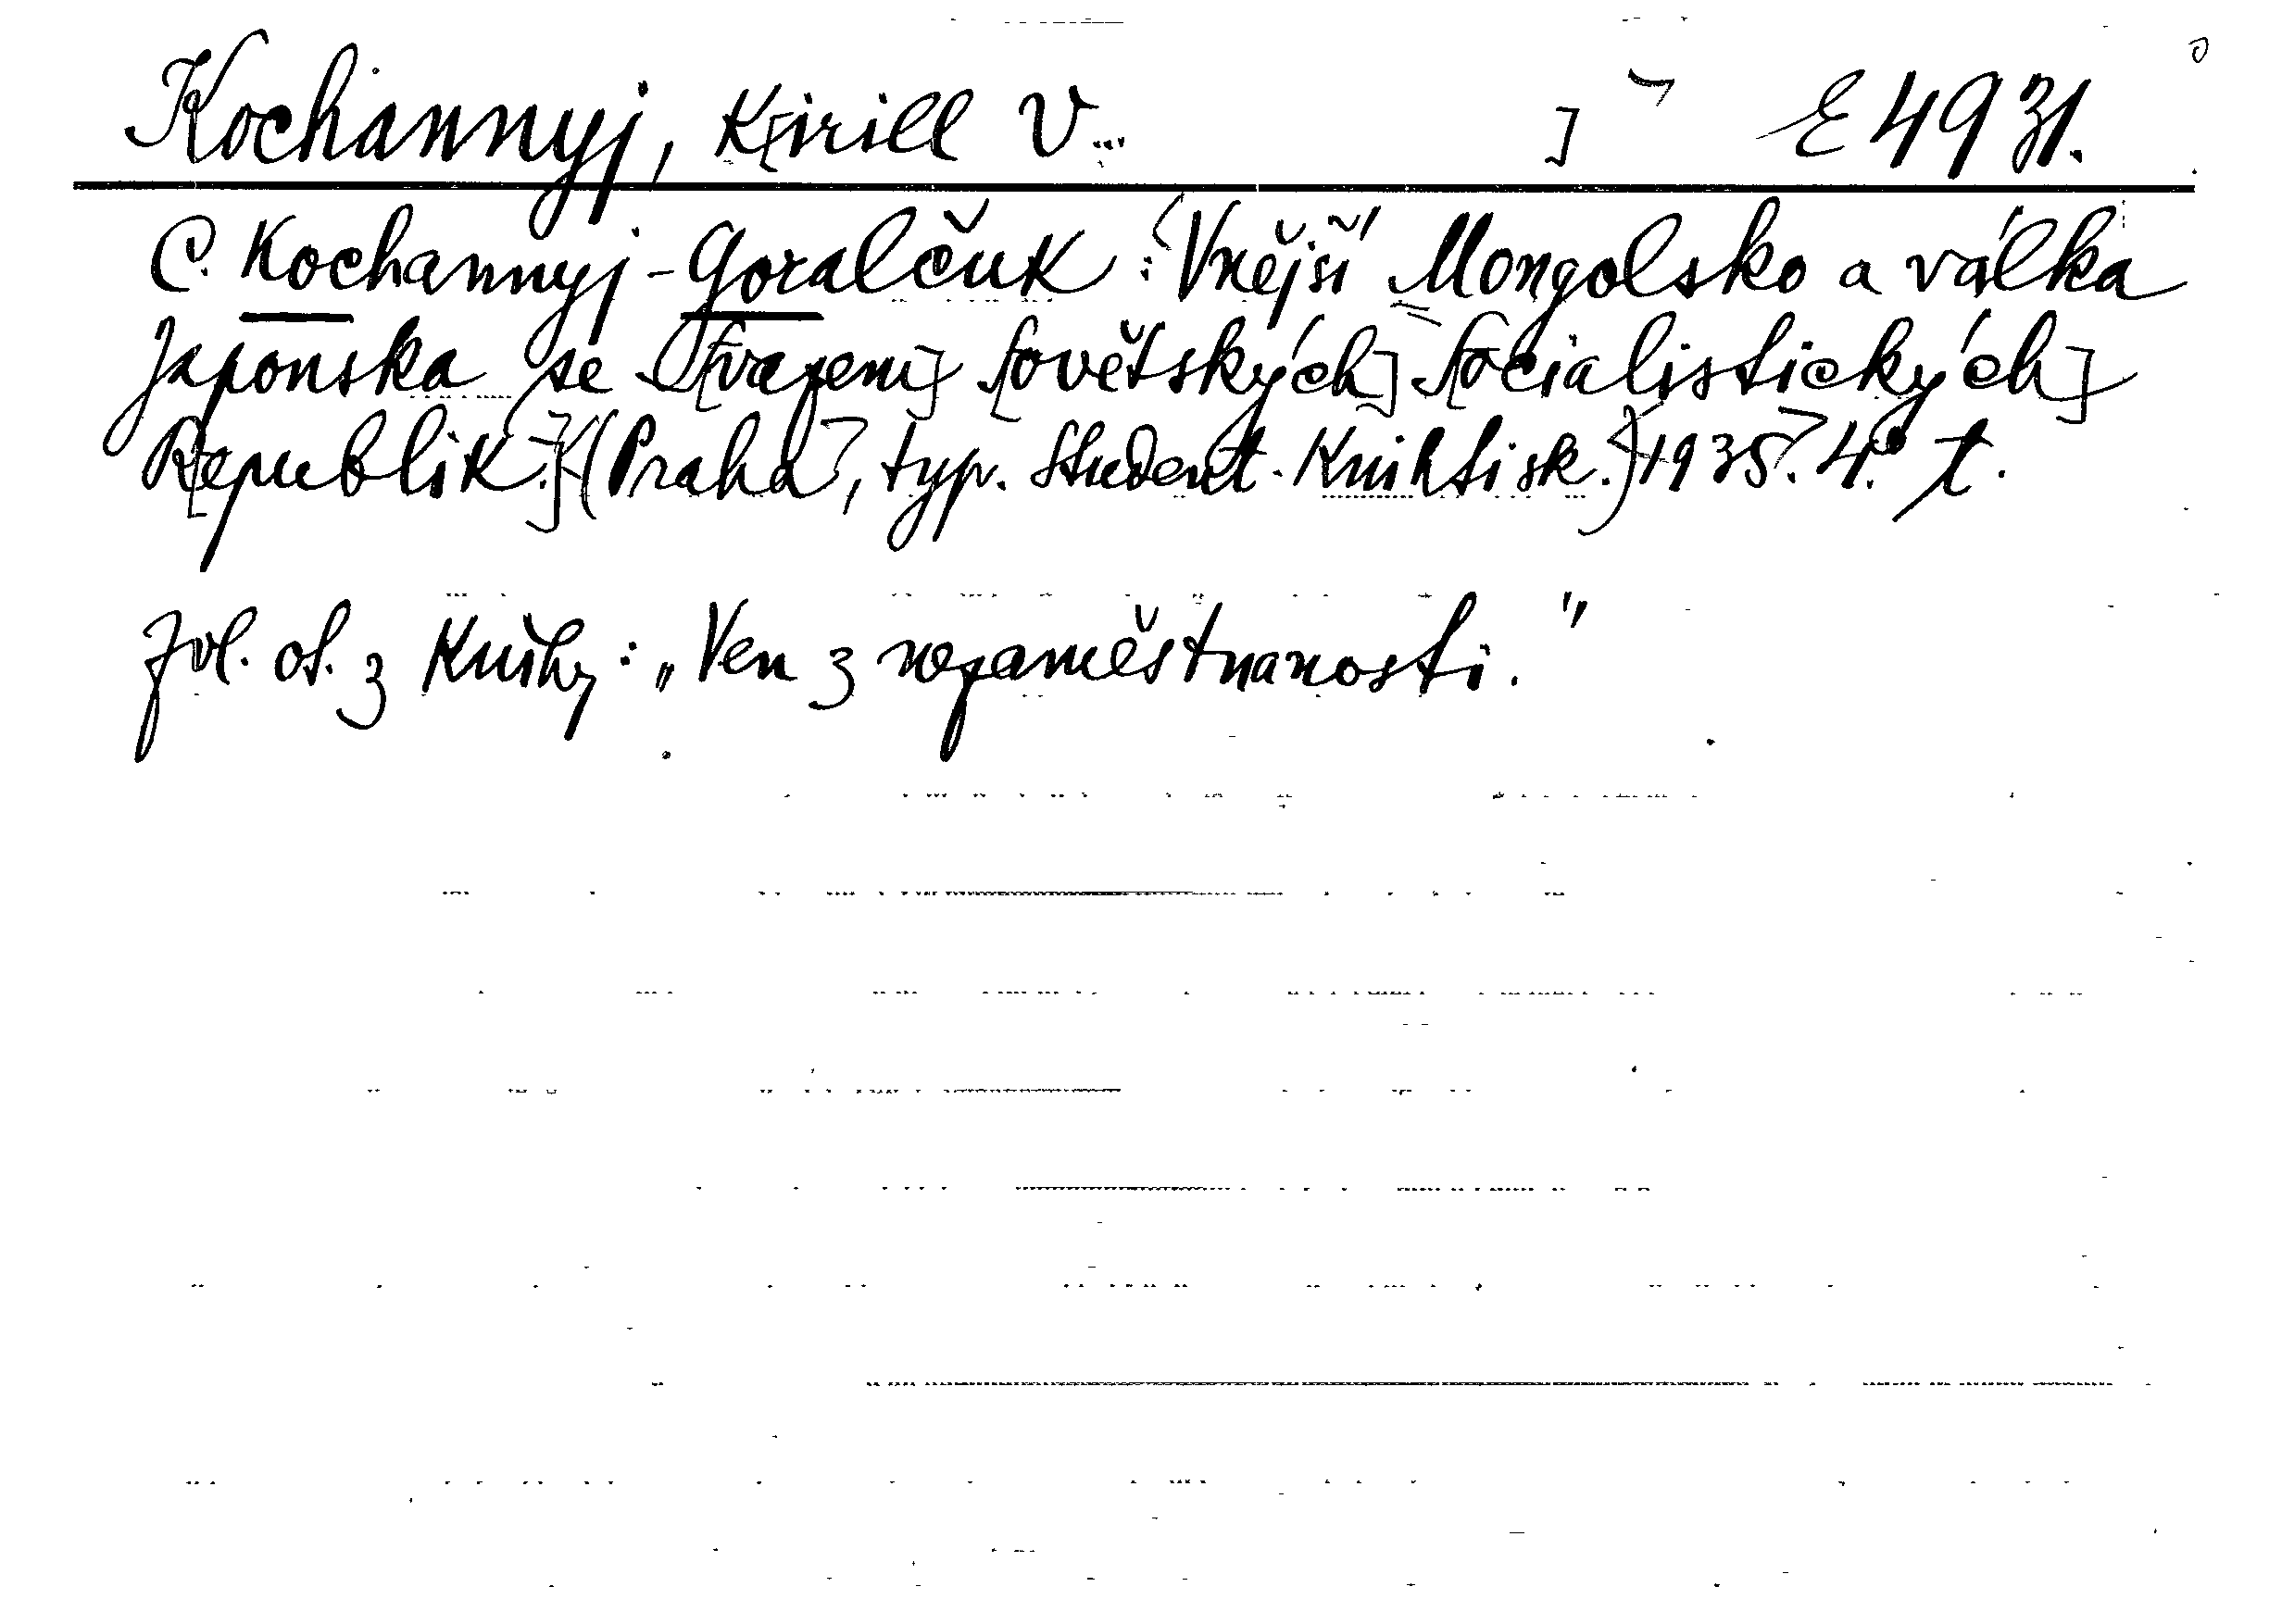 Kochannyj, K[irill V... ] E 4931.
C. Kochannyj-Goralčuk: Vnější Mongolsko a válka
Japonska se S[vazem] S[ovětských] S[ocialistických]
R[epublik.] (Praha, typ. Student. Knihtisk.) 1935. 4.° t.
Zvl. ot. z knihy: „Ven z nezaměstnanosti."